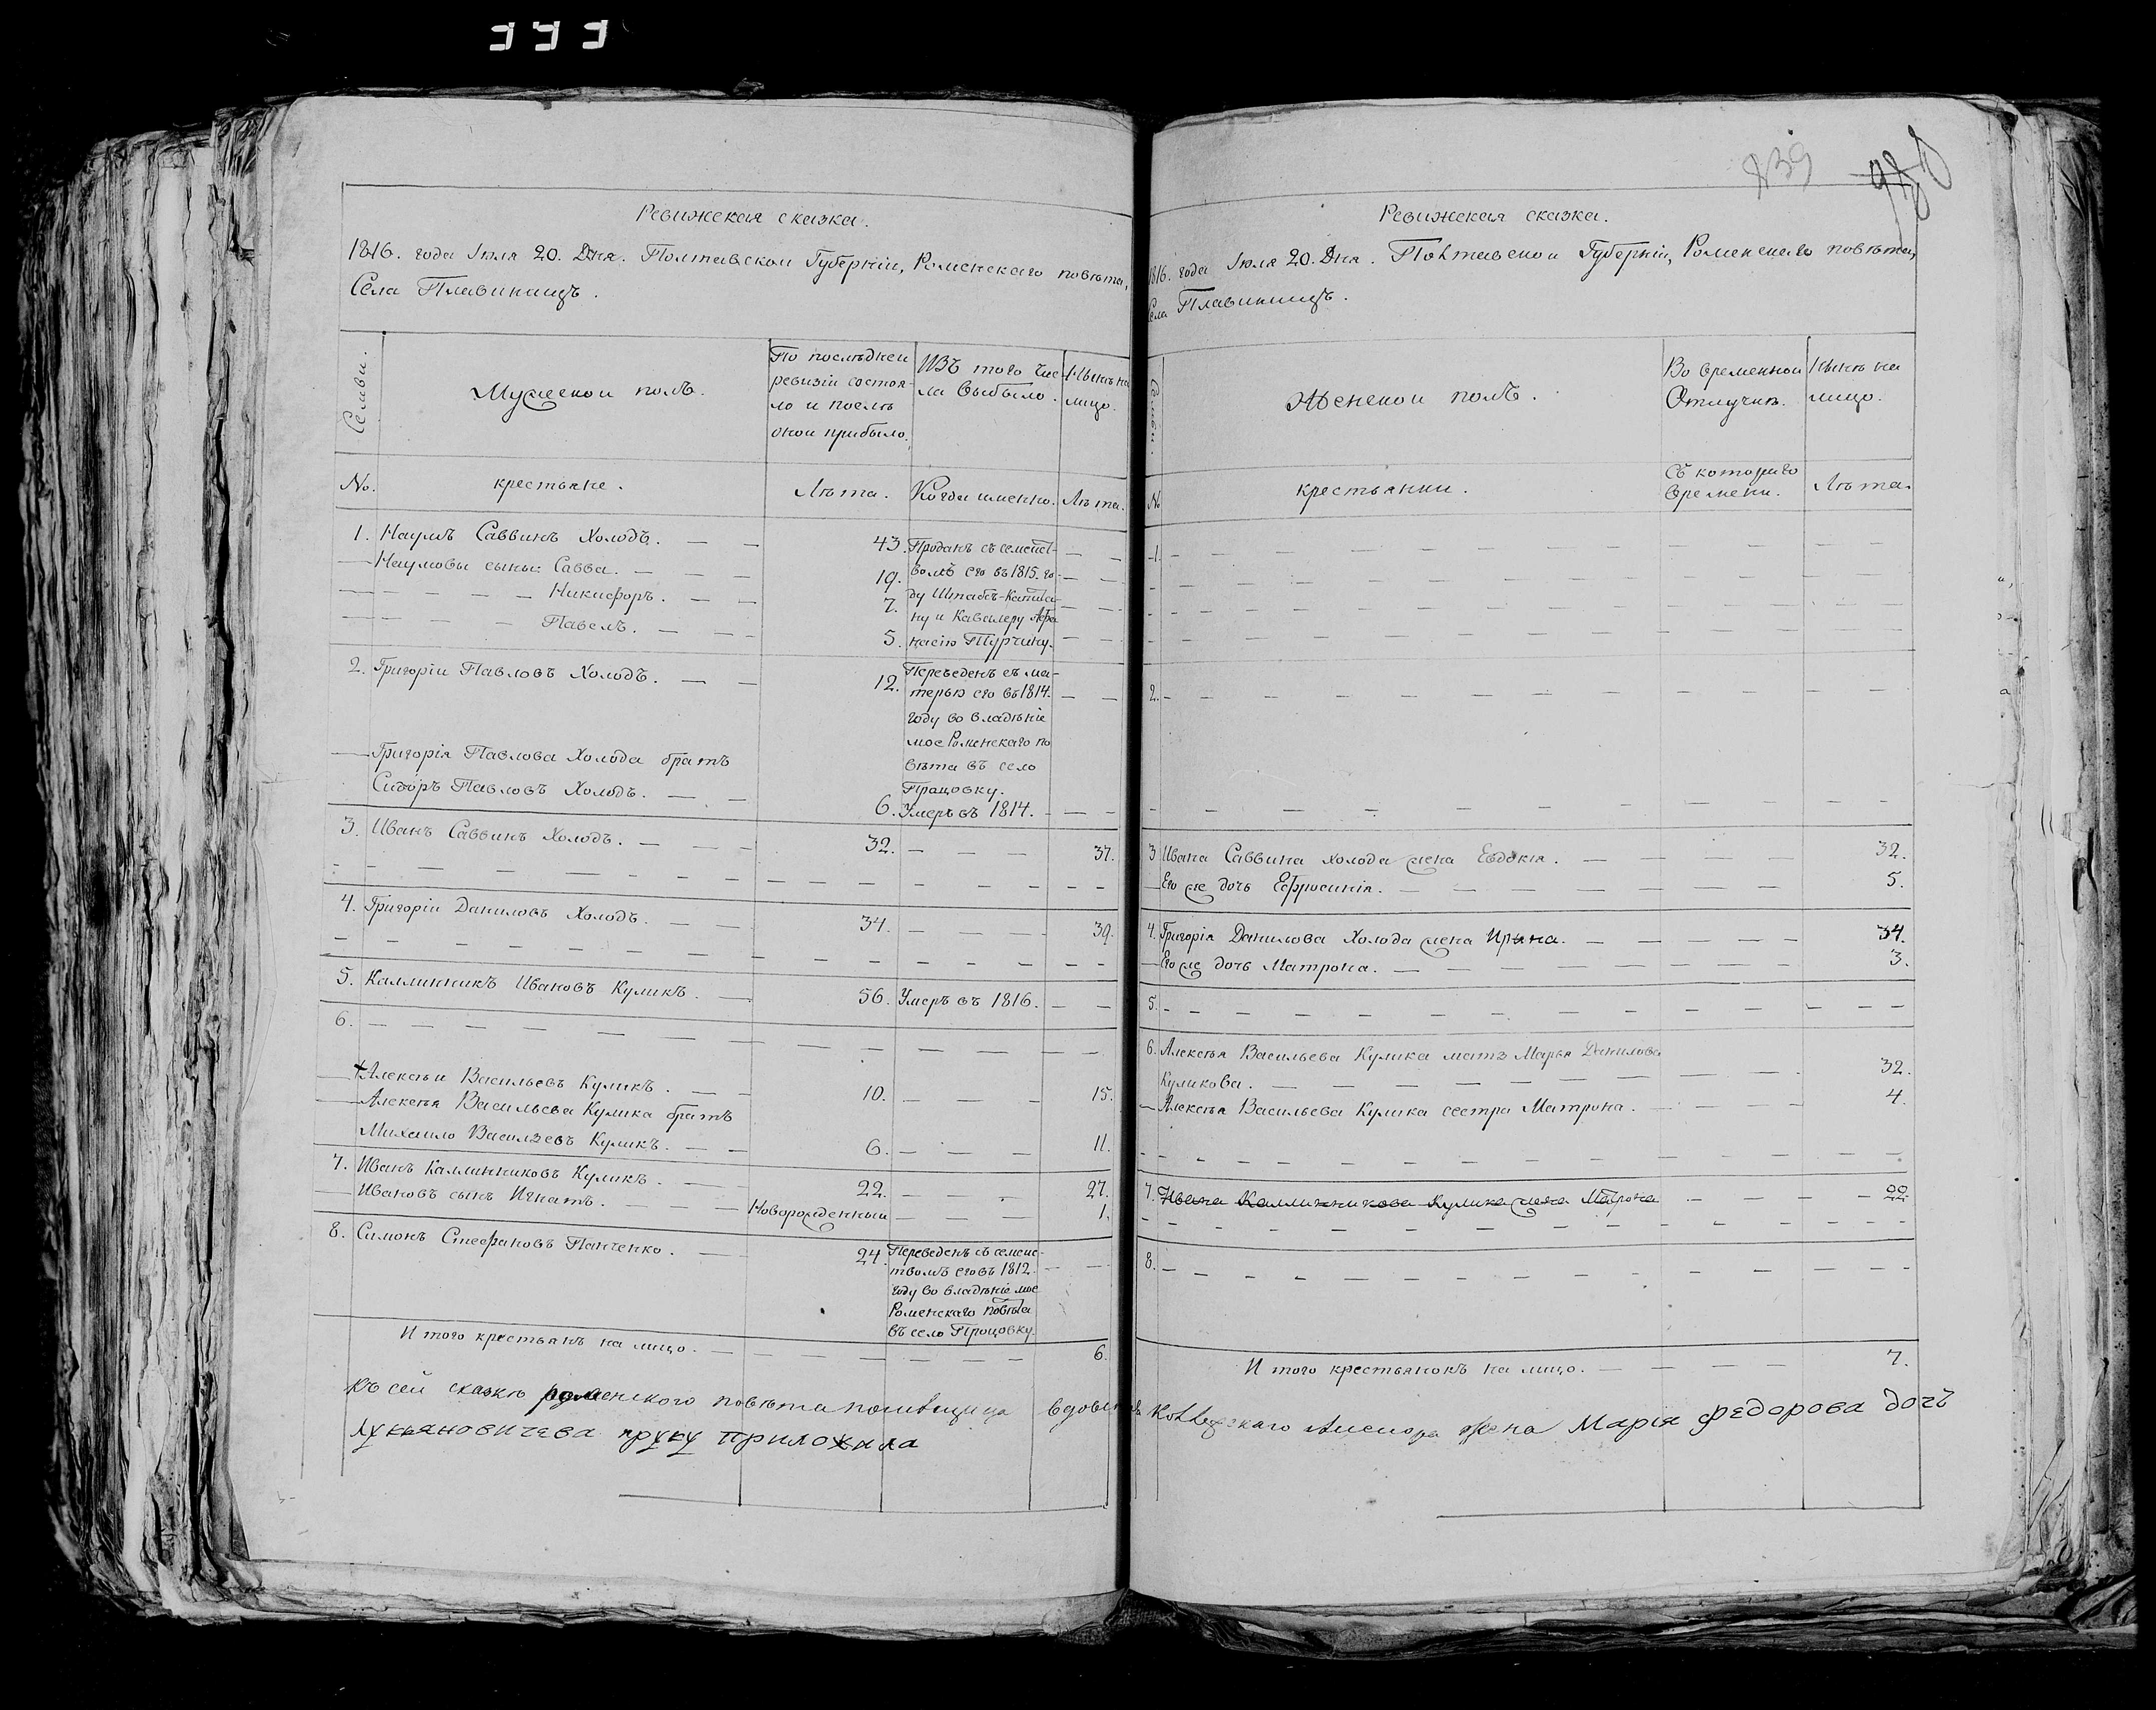 Ревижская сказка.
1816. года Іюля 20. Дня. Полтавской Губерніи, Роменскаго повѣта,
Села Плавинищъ.
Семьи.
Мужеской полъ.
По послѣдней
ревизіи состоя-
ло и послѣ
оной прибыло.
ИЗъ того чис-
ла выбыло.
Нынѣ на
лицо.
№.
крестьяне.
Лѣта.
Когда именно.
Лѣта.
1. Наумъ Саввинъ Холодъ. — — 43. Проданъ съ семейст- — —
— Наумовы сыны: Савва. — — — 19. вомъ его въ 1815. го- — —
— — — — — Никифоръ. — — 7. ду Штабсъ-Капита-
ну и Кавалеру Афа — —
— — — — Павелъ. — — — 5. насію Турчину. — —
2. Григоріи Павловъ Холодъ. — — 12. Переведенъ съ ма-
терью его въ 1814. — —
году во владѣніе
мое Роменскаго по
вѣта въ село
Працовку.
— Григорія Павлова Холода братъ
Сидоръ Павловъ Холодъ. — — 6. Умеръ въ 1814. — —
3. Иванъ Саввинъ Холодъ. — — — 32. — — — 37.
4. Григоріи Даниловъ Холодъ. — — 34. — — — — 39.
5. Каллинникъ Ивановъ Куликъ. — 56. Умеръ въ 1816. — —
6. — — — — — — — — — — — —
— Алексѣи Васильевъ Куликъ. — — 10. — — — 15.
— Алексѣя Васильева Кулика братъ
Михаило Васильевъ Куликъ. — — 6. — — — 11.
7. Иванъ Каллинниковъ Куликъ. — 22. — — — 27.
— Ивановъ сынъ Игнатъ. — — — Новорожденный — — 1.
8. Симонъ Стефановъ Панченко. — 24. Переведенъ съ семейс-
твомъ его въ 1812. — —
году во владѣніе мое
Роменскаго повѣта
въ село Процовку.
И того крестьянъ на лицо. — — — — — — 6.
Ревижская сказка.
1816. года Іюля 20. Дня. Полтавской Губерніи, Роменскаго повѣта,
Села Плавинищъ.
839
Семьи.
Женской полъ.
Во временной
Отлучкѣ.
Нынѣ на
лицо.
№
крестьянки.
Съ котораго
времени.
Лѣта.
1. — — — — — — — — — — — —
2. — — — — — — — — — — — —
3 Ивана Саввина Холода жена Евдокія. — — — — 32.
— Его же дочь Ефросинія. — — — — — — — 5.
4. Григорія Данилова Холода жена Ирина. — — — — — 34.
— Его же дочь Матрона. — — — — — — — 3.
5. — — — — — — — — — — — —
6. Алексѣя Васильева Кулика мать Марья Данилова
Куликова. — — — — — — — — 32.
— Алексѣя Васильева Кулика сестра Матрона. — — — — 4.
7. Ивана Каллинникова Кулика жена Матрона — — — — 22.
8. — — — — — — — — — — — —
И того крестьянокъ на лицо. — — — — 7.
Къ сей сказкѣ роменского повѣта помѣщица жена Марія Федорова дочъ
Лукьяновичева руку приложила